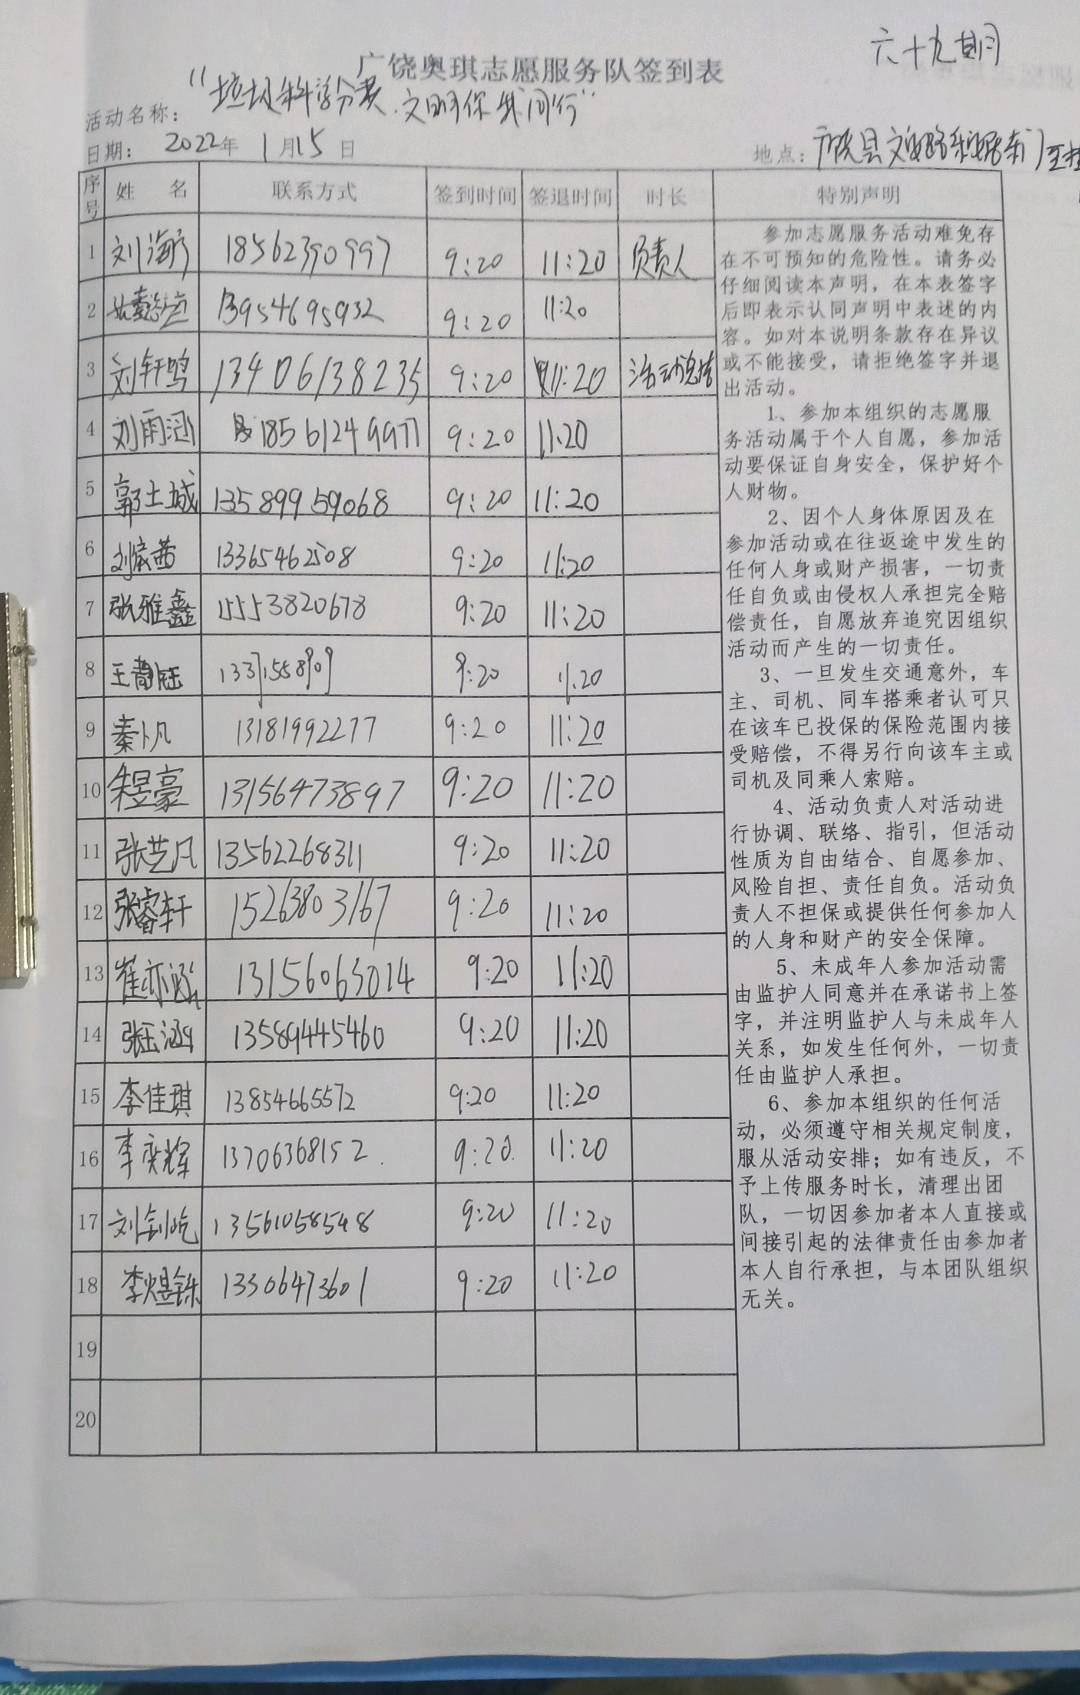 六十九期
广饶奥琪志愿服务队签到表
活动名称："垃圾科学分类.文明环保我同行"
日期：2022年1月15日
地点：广饶县文安路
序号 姓名 联系方式 签到时间 签退时间 时长 特别声明
1 刘海彦 18562390997 9:20 11:20 负责人
2 13954695932 9:20 11:20
3 刘轩鸣 13406138235 9:20 11:20 活动总结
4 刘雨涵 18561249977 9:20 11:20
5 郭士城 13589959068 9:20 11:20
6 刘宸茜 13365462508 9:20 11:20
7 张雅鑫 15553820678 9:20 11:20
8 王静钰 13371558909 9:20 11:20
9 秦卜凡 13181992277 9:20 11:20
10 朱昱豪 13156473897 9:20 11:20
11 张艺凡 13562268311 9:20 11:20
12 张睿轩 15263803167 9:20 11:20
13 崔亦涵 13156063014 9:20 11:20
14 张玉涵 13589445460 9:20 11:20
15 李佳琪 13854665572 9:20 11:20
16 李奕辉 13706368152 9:20 11:20
17 刘剑屹 13561058548 9:20 11:20
18 李煜铄 13306473601 9:20 11:20
19
20
参加志愿服务活动难免存
在不可预知的危险性。请务必
仔细阅读本声明，在本表签字
后即表示认同声明中表述的内
容。如对本说明条款存在异议
或不能接受，请拒绝签字并退
出活动。
1、参加本组织的志愿服
务活动属于个人自愿，参加活
动要保证自身安全，保护好个
人财物。
2、因个人身体原因及在
参加活动或在往返途中发生的
任何人身或财产损害，一切责
任自负或由侵权人承担完全赔
偿责任，自愿放弃追究因组织
活动而产生的一切责任。
3、一旦发生交通意外，车
主、司机、同车搭乘者认可只
在该车已投保的保险范围内接
受赔偿，不得另行向该车主或
司机及同乘人索赔。
4、活动负责人对活动进
行协调、联络、指引，但活动
性质为自由结合、自愿参加、
风险自担、责任自负。活动负
责人不担保或提供任何参加人
的人身和财产的安全保障。
5、未成年人参加活动需
由监护人同意并在承诺书上签
字，并注明监护人与未成年人
关系，如发生任何外，一切责
任由监护人承担。
6、参加本组织的任何活
动，必须遵守相关规定制度，
服从活动安排；如有违反，不
予上传服务时长，清理出团
队，一切因参加者本人直接或
间接引起的法律责任由参加者
本人自行承担，与本团队组织
无关。